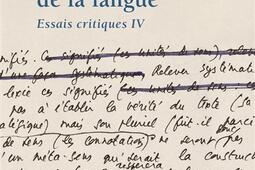 de la langue
Essais critiques IV
signifiés (ces unités de sens),
d'une façon systématique Relever systémat
lexie ces signifiés (ces unités de sens
pas à établir la vérité du texte (sa
mais son pluriel (fût-il parci
de sens (les connotations) ne seront pas
d'un méta-sens qui serait la construc